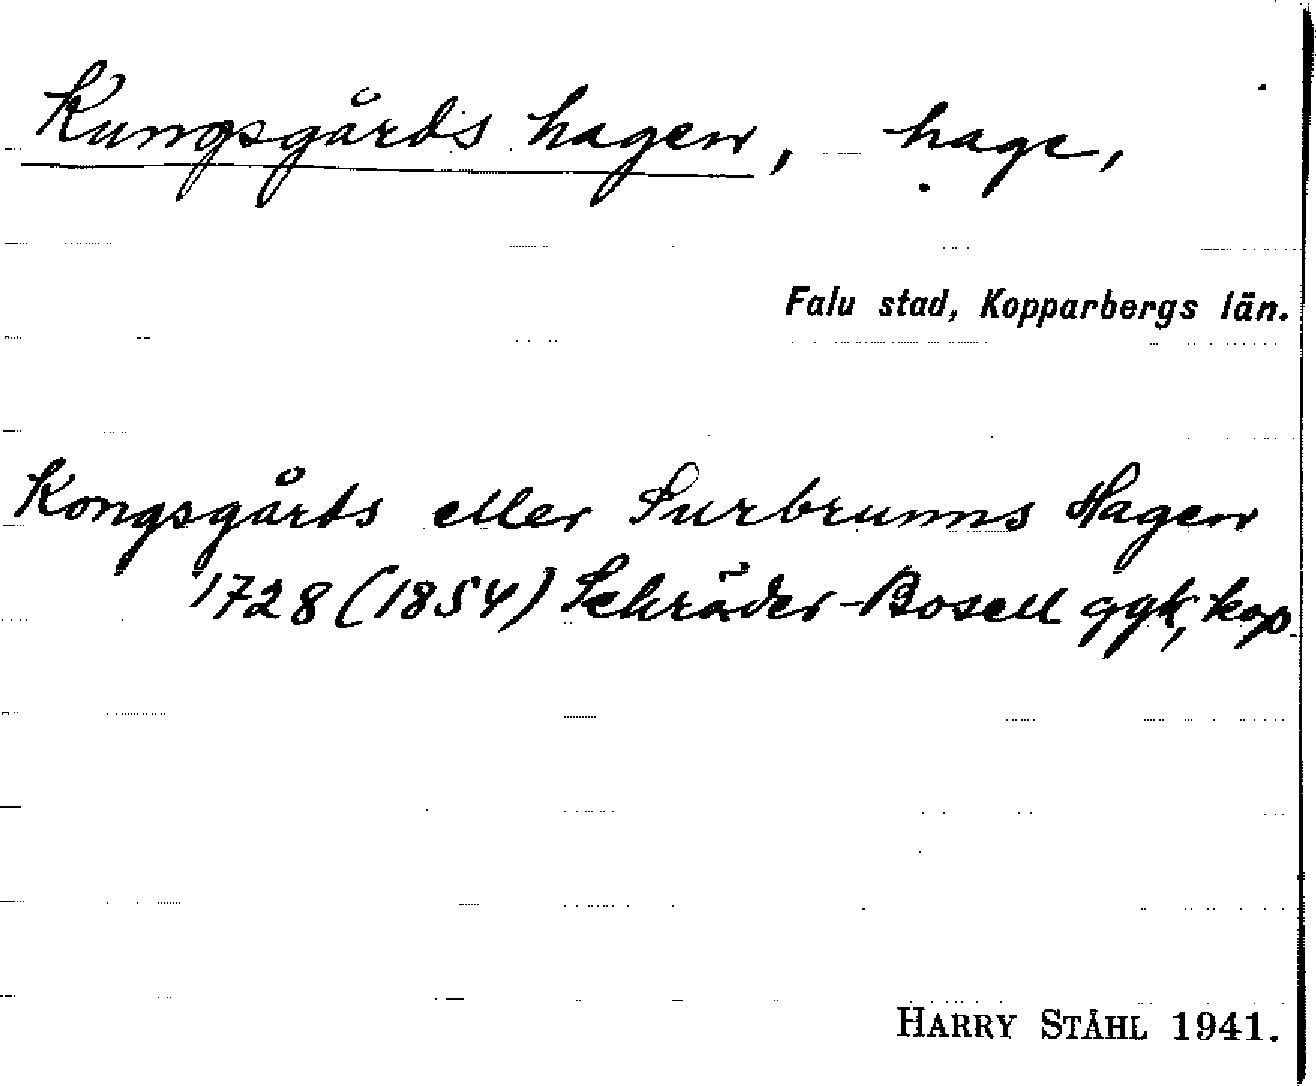 Kungsgårdshagen, hage,
Falu stad, Kopparbergs län.
Kongsgårds eller Surbrunns Hagen
1728 (1854) Schröder-Bosell ggk, kop.
HARRY STÅHL 1941.